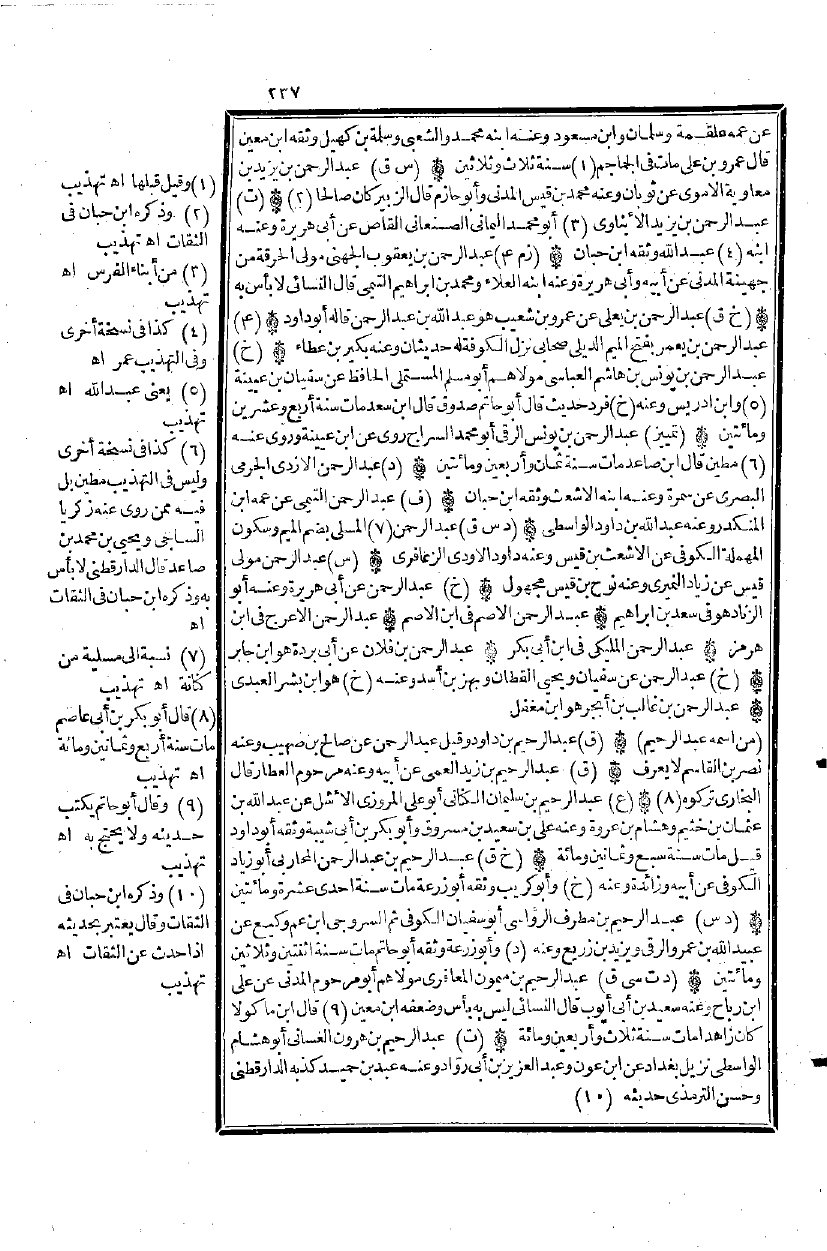 ٢٣٧
عن عمه علقمة وسلمان وابن مسعود وعنه ابنه محمد والشعبى وسلمة بن كهيل وثقه ابن معين
قال عمرو بن على مات فى الجماجم (١) سنة ثلاث وثلاثين ۞ (س ق) عبد الرحمن بن يزيد بن
معاوية الاموى عن ثوبان وعنه محمد بن قيس المدنى وأبو حازم قال الزبير كان صالحا (٢) ۞ (ت)
عبد الرحمن بن يزيد الأبناوى (٣) أبو محمد اليمانى الصنعانى القاص عن أبى هريرة وعنه
ابنه (٤) عبد الله وثقه ابن حبان ۞ (زم ۴) عبد الرحمن بن يعقوب الجهنى مولى الحرقة من
جهينة المدنى عن أبيه وأبى هريرة وعنه ابنه العلاء ومحمد بن ابراهيم التيمى قال النسائى لا بأس به
۞ (خ ق) عبد الرحمن بن يعلى عن عمرو بن شعيب هو عبد الله بن عبد الرحمن قاله أبو داود ۞ (۴)
عبد الرحمن بن يعمر بفتح الميم الديلى صحابى نزل الكوفة له حديثان وعنه بكير بن عطاء ۞ (خ)
عبد الرحمن بن يونس بن هاشم العباسى مولاهم أبو مسلم المستملى الحافظ عن سفيان بن عيينة
(٥) وابن ادريس وعنه (خ) فرد حديث قال أبو حاتم صدوق قال ابن سعد مات سنة أربع وعشرين
ومائتين ۞ (تمييز) عبد الرحمن بن يونس الرقى أبو محمد السراج روى عن ابن عيينة وروى عنه
(٦) مطين قال ابن صاعد مات سنة ثمان وأربعين ومائتين ۞ (د) عبد الرحمن الازدى الجرمى
البصرى عن سمرة وعنه ابنه الاشعث وثقه ابن حبان ۞ (ف) عبد الرحمن التيمى عن عمه ابن
المنكدر وعنه عبد الله بن داود الواسطى ۞ (د س ق) عبد الرحمن (٧) المسلى بضم الميم وسكون
المهملة الكوفى عن الاشعث بن قيس وعنه داود الاودى الزعافرى ۞ (س) عبد الرحمن مولى
قيس عن زياد النميرى وعنه نوح بن قيس مجهول ۞ (خ) عبد الرحمن عن أبى هريرة وعنه أبو
الزناد هو فى سعد بن ابراهيم ۞ عبد الرحمن الاصم فى ابن الاصم ۞ عبد الرحمن الاعرج فى ابن
هرمز ۞ عبد الرحمن المليكى فى ابن أبى بكر ۞ عبد الرحمن بن فلان عن أبى بردة هو ابن جابر
۞ (خ) عبد الرحمن عن سفيان ويحيى القطان وبهز بن أسد وعنه (خ) هو ابن بشر العبدى
۞ عبد الرحمن بن غالب بن أبجر هو ابن مغفل
(من اسمه عبد الرحيم) ۞ (ق) عبد الرحيم بن داود وقيل عبد الرحمن عن صالح بن صهيب وعنه
نصر بن القاسم لا يعرف ۞ (ق) عبد الرحيم بن زيد العمى عن أبيه وعنه مرحوم العطار قال
البخارى تركوه (٨) ۞ (ع) عبد الرحيم بن سليمان الكنانى أبو على المروزى الأشل عن عبد الله بن
عثمان بن خثيم وهشام بن عروة وعنه على بن سعيد بن مسروق وأبو بكر بن أبى شيبة وثقه أبو داود
قيل مات سنة سبع وثمانين ومائة ۞ (خ ق) عبد الرحيم بن عبد الرحمن المحاربى أبو زياد
الكوفى عن أبيه وزائدة وعنه (خ) وأبو كريب وثقه أبو زرعة مات سنة احدى عشرة ومائتين
۞ (د س) عبد الرحيم بن مطرف الرؤاسى أبو سفيان الكوفى ثم السروجى ابن عم وكيع عن
عبيد الله بن عمرو الرقى ويزيد بن زريع وعنه (د) وأبو زرعة وثقه أبو حاتم مات سنة اثنتين وثلاثين
ومائتين ۞ (د ت سى ق) عبد الرحيم بن ميمون المعافرى مولاهم أبو مرحوم المدنى عن على
ابن رباح وعنه سعيد بن أبى أيوب قال النسائى ليس به بأس وضعفه ابن معين (٩) قال ابن ماكولا
كان زاهدا مات سنة ثلاث وأربعين ومائة ۞ (ت) عبد الرحيم بن هرون الغسانى أبو هشام
الواسطى نزيل بغداد عن ابن عون وعبد العزيز بن أبى رواد وعنه عبد بن حميد كذبه الدارقطنى
وحسن الترمذى حديثه (١٠)
(١) وقيل قبلها اه تهذيب
(٢) وذكره ابن حبان فى
الثقات اه تهذيب
(٣) من أبناء الفرس اه
تهذيب
(٤) كذا فى نسخة أخرى
وفى التهذيب عمر اه
(٥) يعنى عبد الله اه
تهذيب
(٦) كذا فى نسخة أخرى
وليس فى التهذيب مطين بل
فيه ممن روى عنه زكريا
الساجى ويحيى بن محمد بن
صاعد قال الدارقطنى لا بأس
به وذكره ابن حبان فى الثقات
اه
(٧) نسبة الى مسلية من
كنانة اه تهذيب
(٨) قال أبو بكر بن أبى عاصم
مات سنة أربع وثمانين ومائة
اه تهذيب
(٩) وقال أبو حاتم يكتب
حديثه ولا يحتج به اه
تهذيب
(١٠) وذكره ابن حبان فى
الثقات وقال يعتبر بحديثه
اذا حدث عن الثقات اه
تهذيب